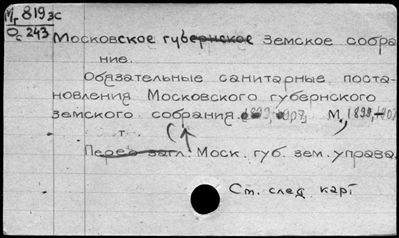 Мг 819 зс
Ос 243
Московское губернское земское собра
ние.
Обязательные санитарные поста-
новления Московского губернского
земского собрания. М., 1899,
т.
Перед загл.: Моск. губ. зем. управа.
См. след. карт